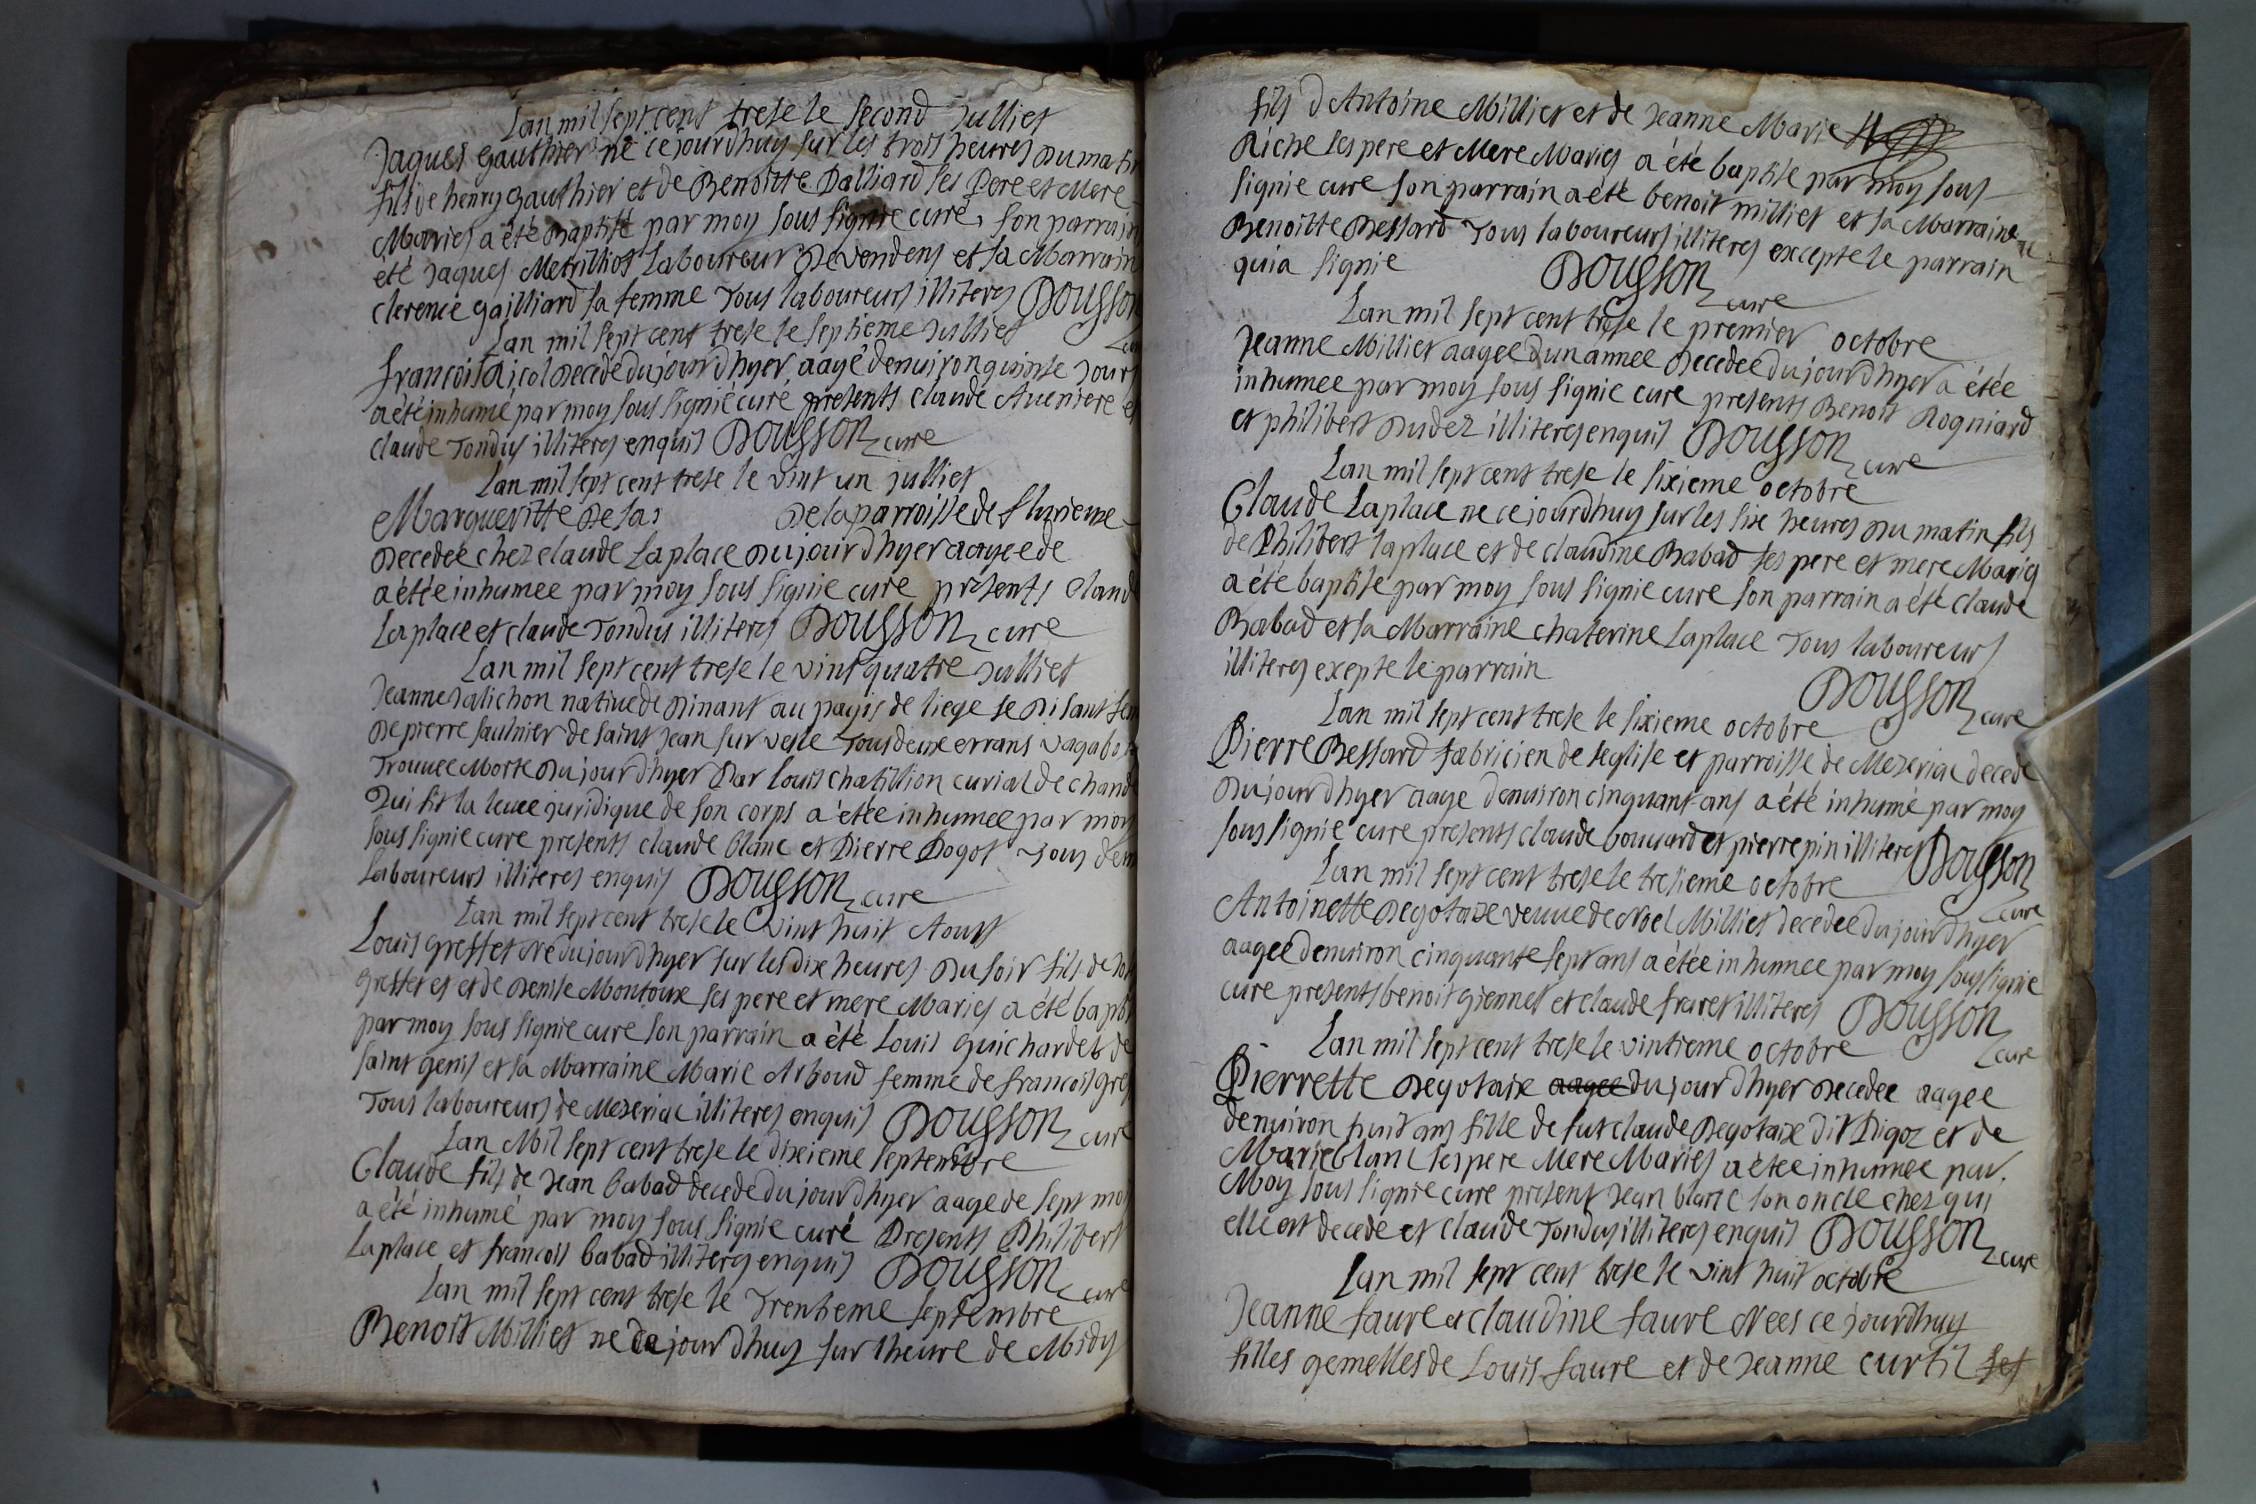 Lan mil sept cent trese le second Julliet
Jaques Gauthier né ce jourdhuy sur les trois heures du matin
fils de henry gauthier et de Benoitte Dalliard ses Pere et Mere
Maries a été Baptisé par moy sous signie curé, son parrain
été Jaques Metrilliot laboureur de vendens et sa Marrain
clerence gailliard sa femme Tous laboureurs illiteres Dousson
Lan mil sept cent trese le septieme Julliet
francois Aicol decede du jour dhyer, aagé denviron quinse jours
a été inhumé par moy sous signié curé presents claude Aveniere et
claude Tondus illiteres enquis Dousson cure
Lan mil sept cent trese le vint un julliet
Marguerite Delas de la parroisse de
decedee chez claude Laplace du jour dhyer aagee de
a étée inhumee par moy sous signie cure presents Claude
Laplace et claude Tondus illiteres Dousson cure
Lan mil sept cent trese le vint quatre Julliet
Jeanne Salichon native de Dinant au payis de liege se disant fem
de pierre saulnier de saint Jean sur vesle Tous deux errans vagabon
Trouvee Morte du jour dhyer Par louis chatillion curial de chande
Qui fit la levee juridique de son corps a étée inhumee par moy
sous signie cure presents claude blanc et Pierre Pogot Tous deux
laboureurs illiteres enquis Dousson cure
Lan mil sept cent trese le vint huit Aoust
Louis greffet né du jour dhyer sur les dix heures du soir fils de
greffet et de Denise Montoux ses pere et mere Maries a été bapti
par moy sous signie cure son parrain a été Louis guichardet de
saint genis et sa Marraine Marie Arboud femme de francois gref
Tous laboureurs de Meseriac illiteres enquis Dousson cure
Lan Mil sept cent trese le dixieme septembre
Claude fils de Jean babad decede du jour dhyer aage de sept moy
a été inhumé par moy sous signie curé Presents Philibert
Laplace et francois babad illiteres enquis Dousson cure
Lan mil sept cent trese le Trentieme septembre
Benoit Milliet ne ce jour dhuy sur lheure de Midy
fils dAntoine Milliet et de Jeanne Marie
Riche ses pere et Mere Maries a été baptise par moy sous
signie cure son parrain a été benoit milliet et sa Marraine
Benoitte Bessard Tous laboureurs illiteres excepte le parrain
qui a signie Dousson cure
Lan mil sept cent trese le premier octobre
Jeanne Milliet aagee dun annee decedee du jour dhyer a étée
inhumee par moy sous signie cure presents Benoit Rogniard
et philibert Dudez illiteres enquis Dousson cure
Lan mil sept cent trese le sixieme octobre
Claude Laplace ne ce jourdhuy sur les six heures du matin fils
de Philibert laplace et de claudine Babad ses pere et mere Maries
a été baptise par moy sous signie cure son parrain a été claude
Babad et sa Marraine chaterine Laplace Tous laboureurs
illiteres exepte le parrain Dousson cure
Lan mil sept cent trese le sixieme octobre
Pierre Bessard fabricien de leglise et parroisse de Meseriac decede
du jour dhyer aage denviron cinquant ans a été inhumé par moy
sous signie cure presents claude bouvard et pierre pin illiteres Dousson
cure
Lan mil sept cent trese le tresieme octobre
Antoinette Degotaix veuve de Noel Milliet decedee du jour dhyer
aagee denviron cinquante sept ans a étée inhumee par moy sous signie
cure presents benoit giennet et claude fraret illiteres Dousson
cure
Lan mil sept cent trese le vintieme octobre
Pierrette Degotaix aagee du jour dhyer decedee aagee
denviron huit ans fille de fut claude Degotaix dit Digoz et de
Marie blanc ses pere Mere Maries a étée inhumee par
Moy sous signie cure present Jean blanc son oncle chez qui
elle est decede et claude Tondus illiteres enquis Dousson cure
Lan mil sept cent trese le vint huit octobre
Jeanne faure et claudine faure Nees ce jourdhuy
filles gemelles de Louis faure et de Jeanne curtil ses